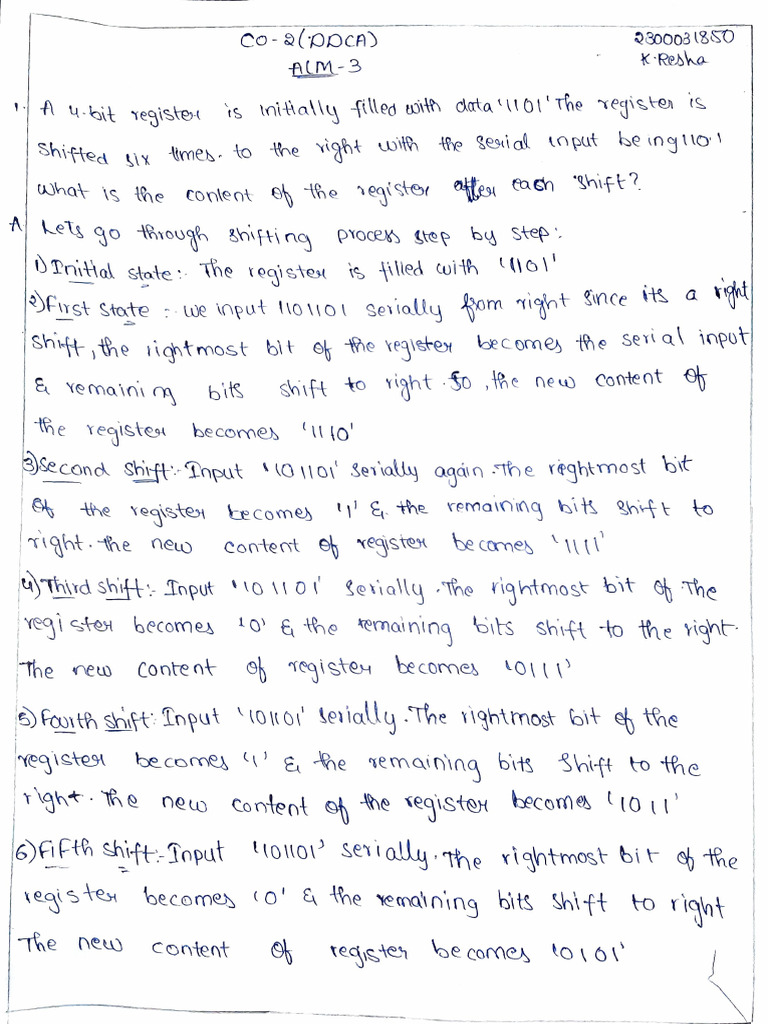 CO-2(DDCA)
2300031850
ALM-3
K.Resha
1. A 4-bit register is initially filled with data '1101' The register is
shifted six times. to the right with the serial input being 1101
what is the content of the register after each shift?
A Lets go through shifting process step by step:
1) Initial state:- The register is filled with '1101'
2) First state :- we input 1101101 serially from right since its a right
shift, the rightmost bit of the register becomes the serial input
& remaining bits shift to right. So, the new content of
the register becomes '1110'
3) Second shift:- Input '101101' serially again. The rightmost bit
of the register becomes '1' & the remaining bits shift to
right. the new content of register becomes '1111'
4) Third shift:- Input '101101' serially. The rightmost bit of The
register becomes '0' & the remaining bits shift to the right.
The new content of register becomes '0111'
5) Fourth shift: Input '101101' serially. The rightmost bit of the
register becomes '1' & the remaining bits shift to the
right. The new content of the register becomes '1011'
6) Fifth shift:- Input '101101' serially. The rightmost bit of the
register becomes '0' & the remaining bits shift to right
The new content of register becomes '0101'